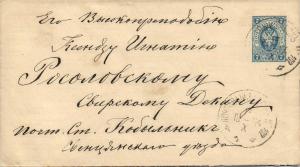 Его Высокопреподобію
Ксендзу Игнатію
Росоловскому
Свирскому Декану
почт. Ст. Кобыльникъ
Свенцянскаго уѣзда